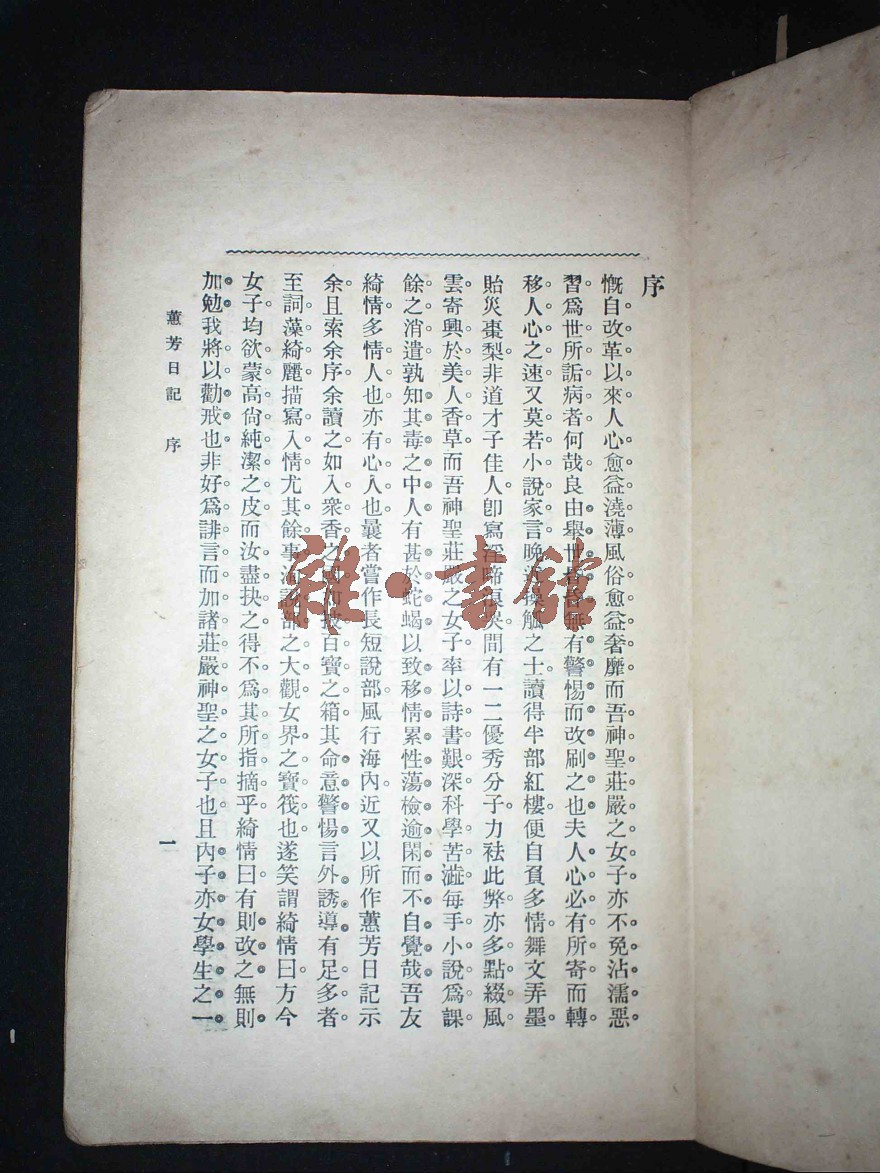 序
慨自改革以來人心愈益澆薄風俗愈益奢靡而吾神聖莊嚴之女子亦不免沾濡惡
習爲世所詬病者何哉良由舉世昏昏無有警惕而改刷之也夫人心必有所寄而轉
移人心之速又莫若小說家言晚近操觚之士讀得半部紅樓便自負多情舞文弄墨
貽災棗梨非道才子佳人卽寫淫啼浪哭間有一二優秀分子力祛此弊亦多點綴風
雲寄興於美人香草而吾神聖莊嚴之女子率以詩書艱深科學苦澁每手小說爲課
餘之消遣孰知其毒之中人有甚於蛇蝎以致移情累性蕩檢逾閑而不自覺哉吾友
綺情多情人也亦有心人也曩者嘗作長短說部風行海內近又以所作蕙芳日記示
余且索余序余讀之如入衆香之國如披百寶之箱其命意警惕言外誘導有足多者
至詞藻綺麗描寫入情尤其餘事洵說部之大觀女界之寶筏也遂笑謂綺情曰方今
女子均欲蒙高尙純潔之皮而汝盡抉之得不爲其所指摘乎綺情曰有則改之無則
加勉我將以勸戒也非好爲誹言而加諸莊嚴神聖之女子也且內子亦女學生之一
蕙芳日記 序
一
雜·書館